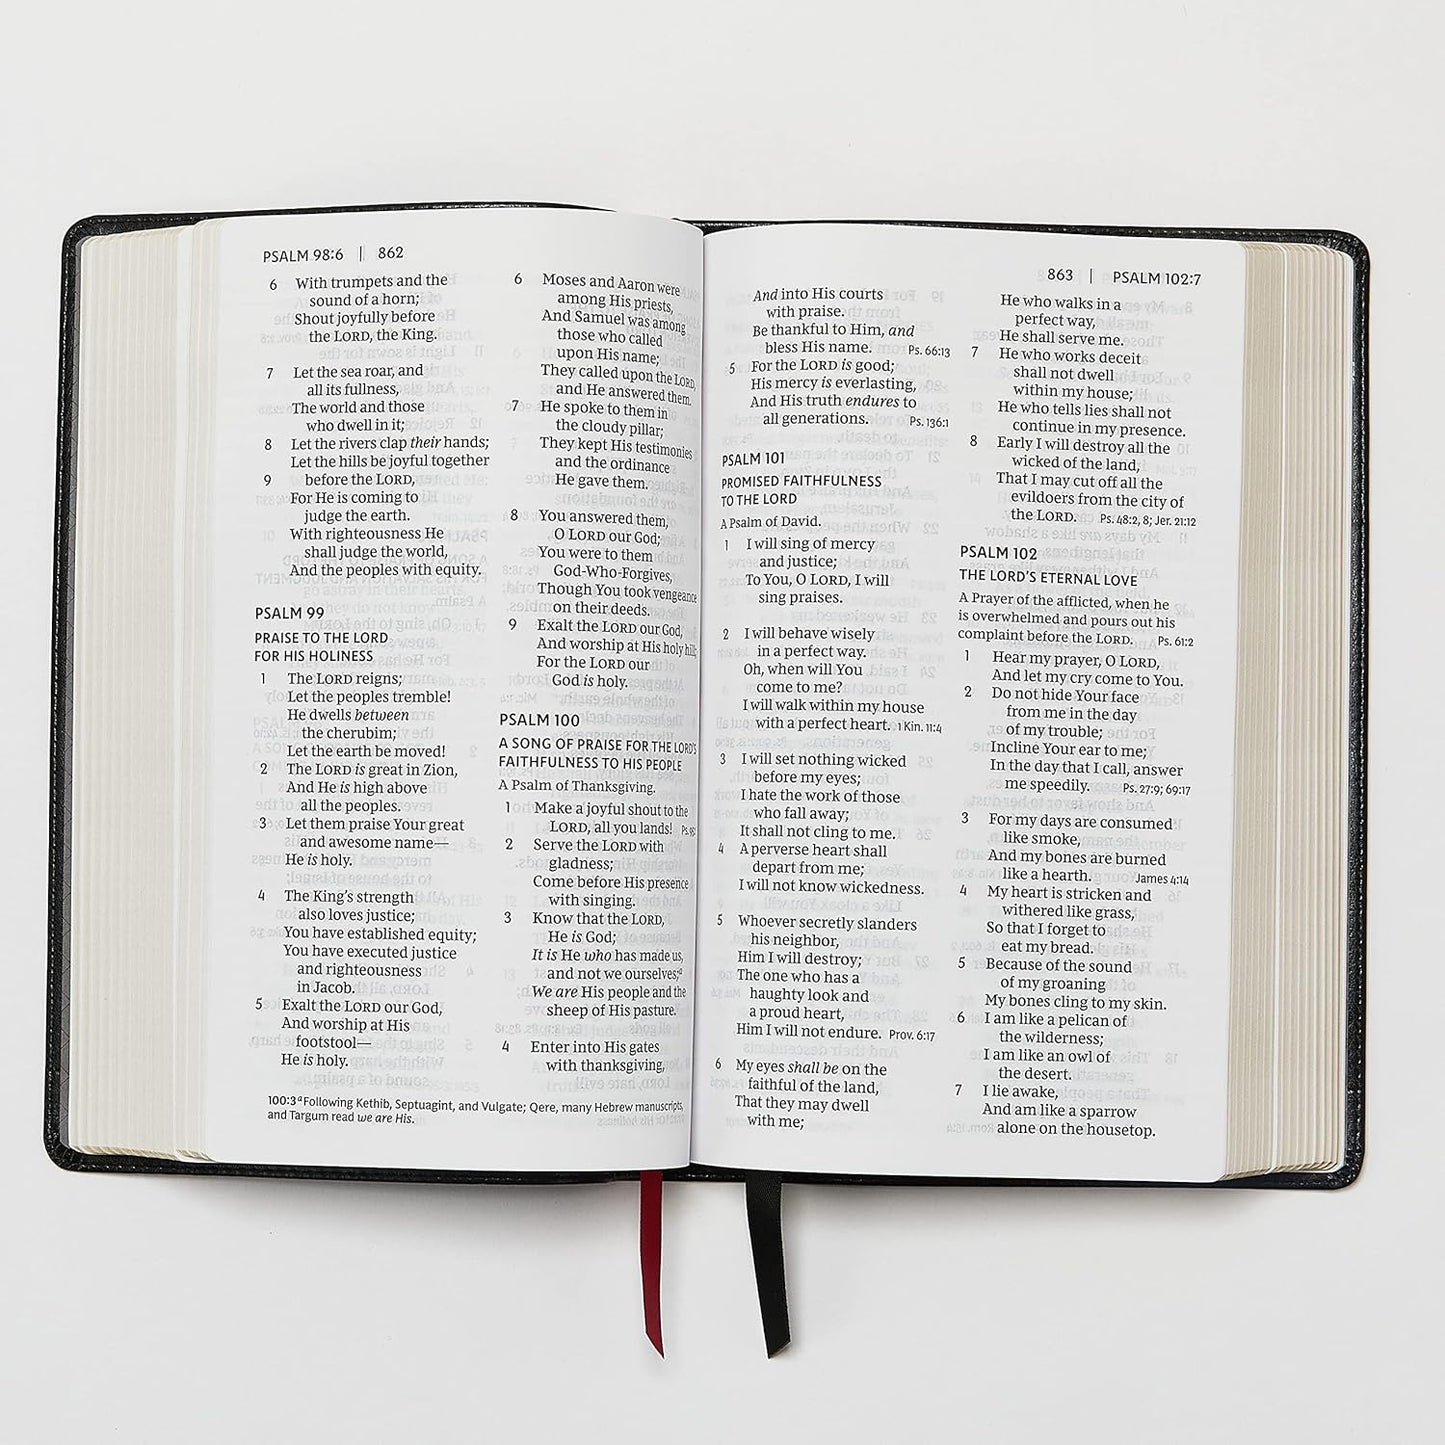 PSALM 98:6 | 862
6 With trumpets and the
sound of a horn;
Shout joyfully before
the LORD, the King.
7 Let the sea roar, and
all its fullness,
The world and those
who dwell in it;
8 Let the rivers clap their hands;
Let the hills be joyful together
9 before the LORD,
For He is coming to
judge the earth.
With righteousness He
shall judge the world,
And the peoples with equity.
PSALM 99
PRAISE TO THE LORD
FOR HIS HOLINESS
1 The LORD reigns;
Let the peoples tremble!
He dwells between
the cherubim;
Let the earth be moved!
2 The LORD is great in Zion,
And He is high above
all the peoples.
3 Let them praise Your great
and awesome name—
He is holy.
4 The King's strength
also loves justice;
You have established equity;
You have executed justice
and righteousness
in Jacob.
5 Exalt the LORD our God,
And worship at His
footstool—
He is holy.
6 Moses and Aaron were
among His priests,
And Samuel was among
those who called
upon His name;
They called upon the LORD,
and He answered them.
7 He spoke to them in
the cloudy pillar;
They kept His testimonies
and the ordinance
He gave them.
8 You answered them,
O LORD our God;
You were to them
God-Who-Forgives,
Though You took vengeance
on their deeds.
9 Exalt the LORD our God,
And worship at His holy hill;
For the LORD our
God is holy.
PSALM 100
A SONG OF PRAISE FOR THE LORD'S
FAITHFULNESS TO HIS PEOPLE
A Psalm of Thanksgiving.
1 Make a joyful shout to the
LORD, all you lands! Ps.
2 Serve the LORD with
gladness;
Come before His presence
with singing.
3 Know that the LORD,
He is God;
It is He who has made us,
and not we ourselves;a
We are His people and the
sheep of His pasture.
4 Enter into His gates
with thanksgiving,
100:3 a Following Kethib, Septuagint, and Vulgate; Qere, many Hebrew manuscripts,
and Targum read we are His.
863 | PSALM 102:7
And into His courts
with praise.
Be thankful to Him, and
bless His name. Ps. 66:13
5 For the LORD is good;
His mercy is everlasting,
And His truth endures to
all generations. Ps. 136:1
PSALM 101
PROMISED FAITHFULNESS
TO THE LORD
A Psalm of David.
1 I will sing of mercy
and justice;
To You, O LORD, I will
sing praises.
2 I will behave wisely
in a perfect way.
Oh, when will You
come to me?
I will walk within my house
with a perfect heart. 1 Kin. 11:4
3 I will set nothing wicked
before my eyes;
I hate the work of those
who fall away;
It shall not cling to me.
4 A perverse heart shall
depart from me;
I will not know wickedness.
5 Whoever secretly slanders
his neighbor,
Him I will destroy;
The one who has a
haughty look and
a proud heart,
Him I will not endure. Prov. 6:17
6 My eyes shall be on the
faithful of the land,
That they may dwell
with me;
He who walks in a
perfect way,
He shall serve me.
7 He who works deceit
shall not dwell
within my house;
He who tells lies shall not
continue in my presence.
8 Early I will destroy all the
wicked of the land,
That I may cut off all the
evildoers from the city of
the LORD. Ps. 48:2, 8; Jer. 21:12
PSALM 102
THE LORD'S ETERNAL LOVE
A Prayer of the afflicted, when he
is overwhelmed and pours out his
complaint before the LORD. Ps. 61:2
1 Hear my prayer, O LORD,
And let my cry come to You.
2 Do not hide Your face
from me in the day
of my trouble;
Incline Your ear to me;
In the day that I call, answer
me speedily. Ps. 27:9; 69:17
3 For my days are consumed
like smoke,
And my bones are burned
like a hearth. James 4:14
4 My heart is stricken and
withered like grass,
So that I forget to
eat my bread.
5 Because of the sound
of my groaning
My bones cling to my skin.
6 I am like a pelican of
the wilderness;
I am like an owl of
the desert.
7 I lie awake,
And am like a sparrow
alone on the housetop.